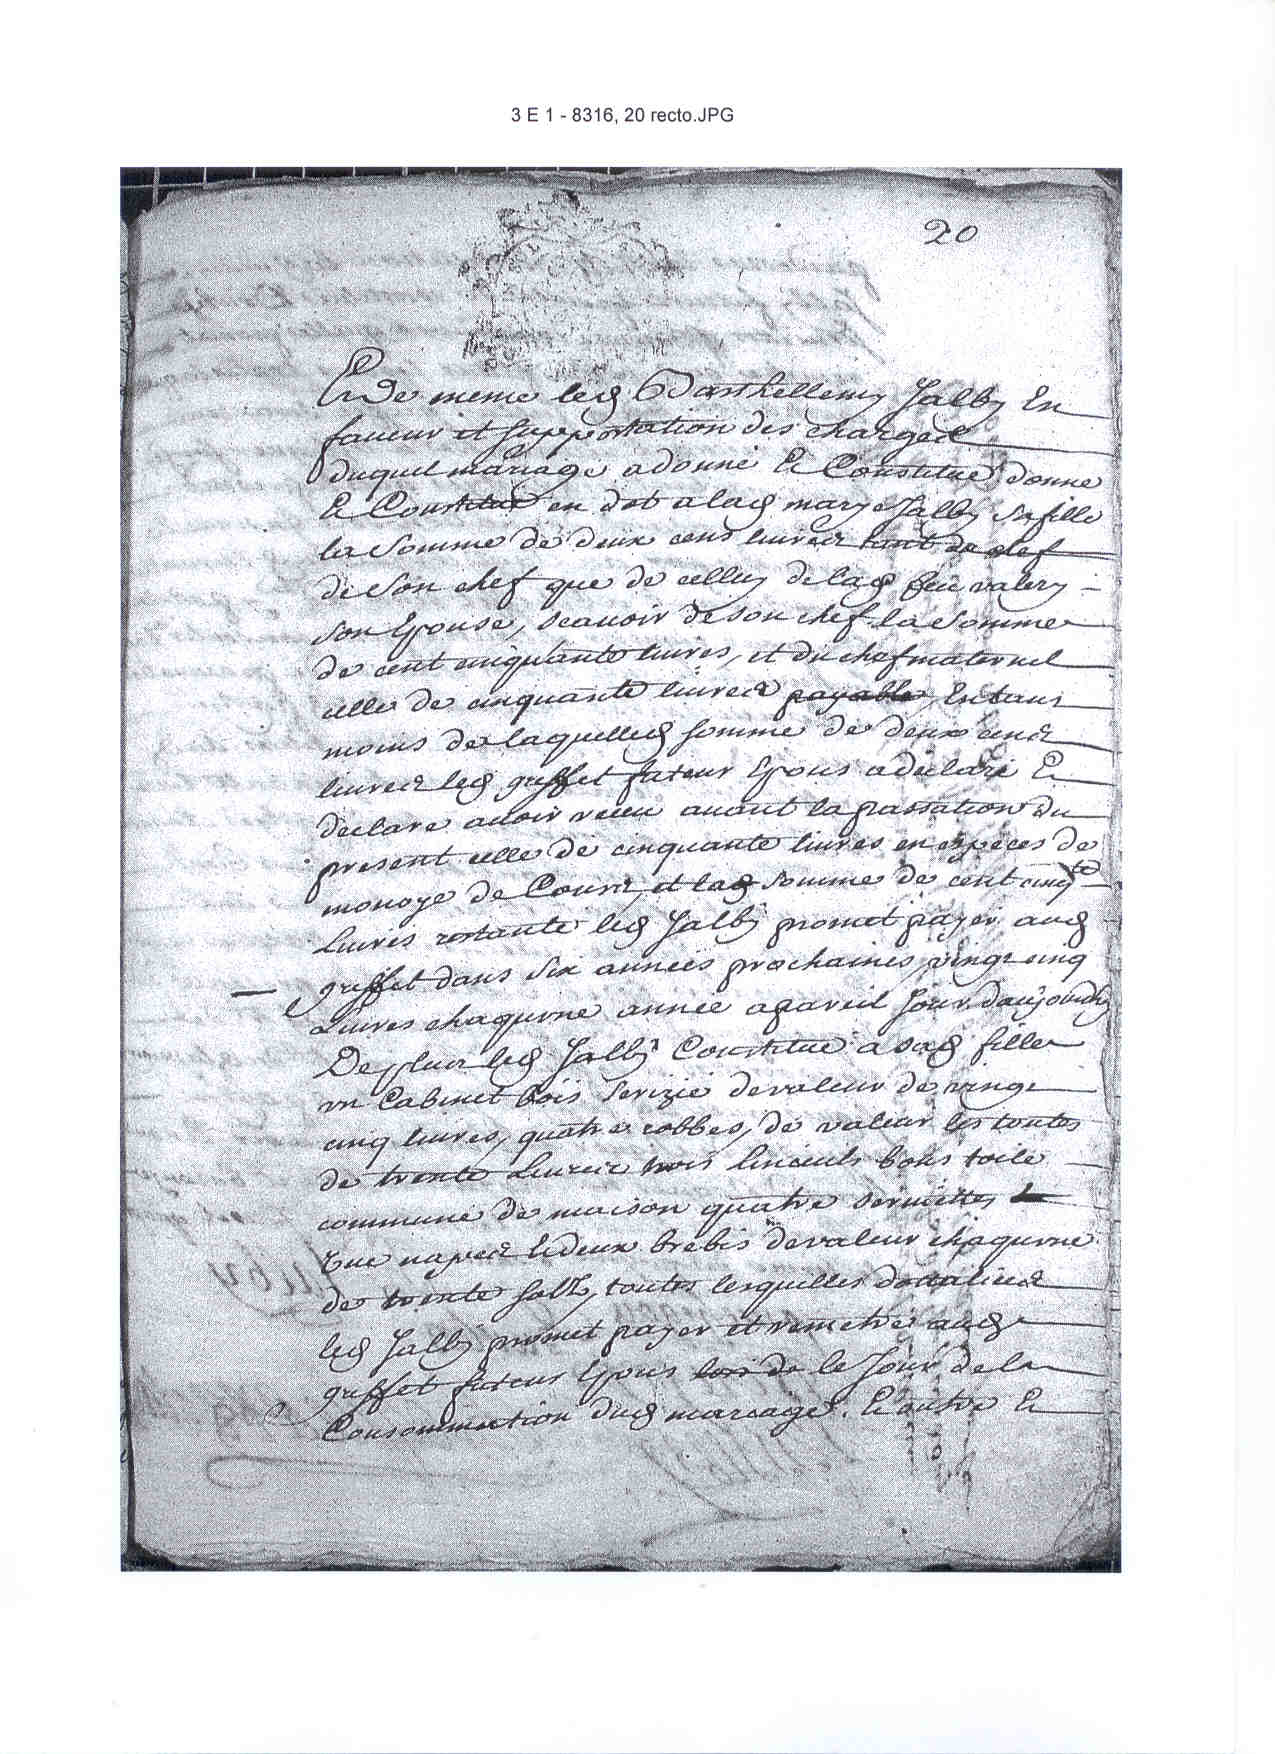 3 E 1 - 8316, 20 recto.JPG
20
Et de meme led Barthellemy Jalby En
faveur et supportation des charges
duquel mariage a donné Et Constitué donne
Et Constitue en dot a lad mary Jalby sa fille
la Somme de deux cens livres tant de chef
de Son chef que de celluy de lad feue valery
son Epouse, scavoir de son chef la Somme
de cent cinquante livres, et du chef maternel
celle de cinquante livres payable, En tant
moins de laquelled somme de deux cens
livres led guffet futeur Epous a déclaré Et
declare avoir receu avant la passation du
present celle de cinquante livres en especes de
monoye de Cours, et lad Somme de cent cinqte
Livres restante led Jalby promet payer aud
guffet dans six années prochaines, vingt cinq
Livres chaqune année a pareil jour daujourdhuy
De plus led Jalby Constitue a sad fille
un Cabinet bois Serizié de valeur de vingt
cinq livres, quatre robbes, de valeur les toutes
de trente Livres trois linceuls bons toile
commune de maison quatre serviettes
une nape Et deux brebis de valeur chaqune
de trente solz, toutes lesquelles dottalices
led Jalby promet payer et remetre aud
guffet futeur Epous lors de le Jour de la
Consommation dud mariage. Et outre Et